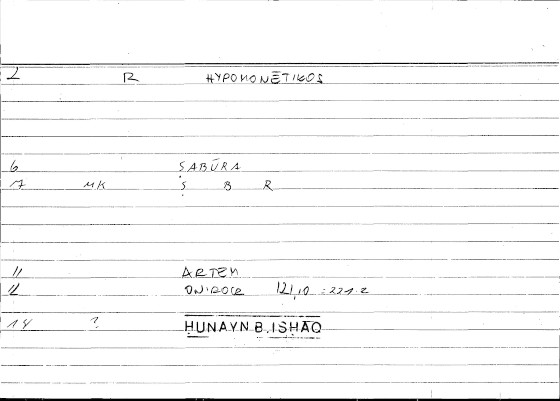 2 R HYPOMONĒTIKOS
6 ṢABŪRA
7 MK Ṣ B R
11 ARTEM
12 ONIROCR 121,10 = 221.2
14 ? ḤUNAYN B. ISḤĀQ